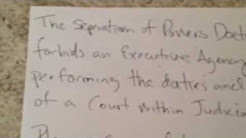 The Separation of Powers Doct
forbids an Executive Agency
performing the duties and
of a Court within Judici